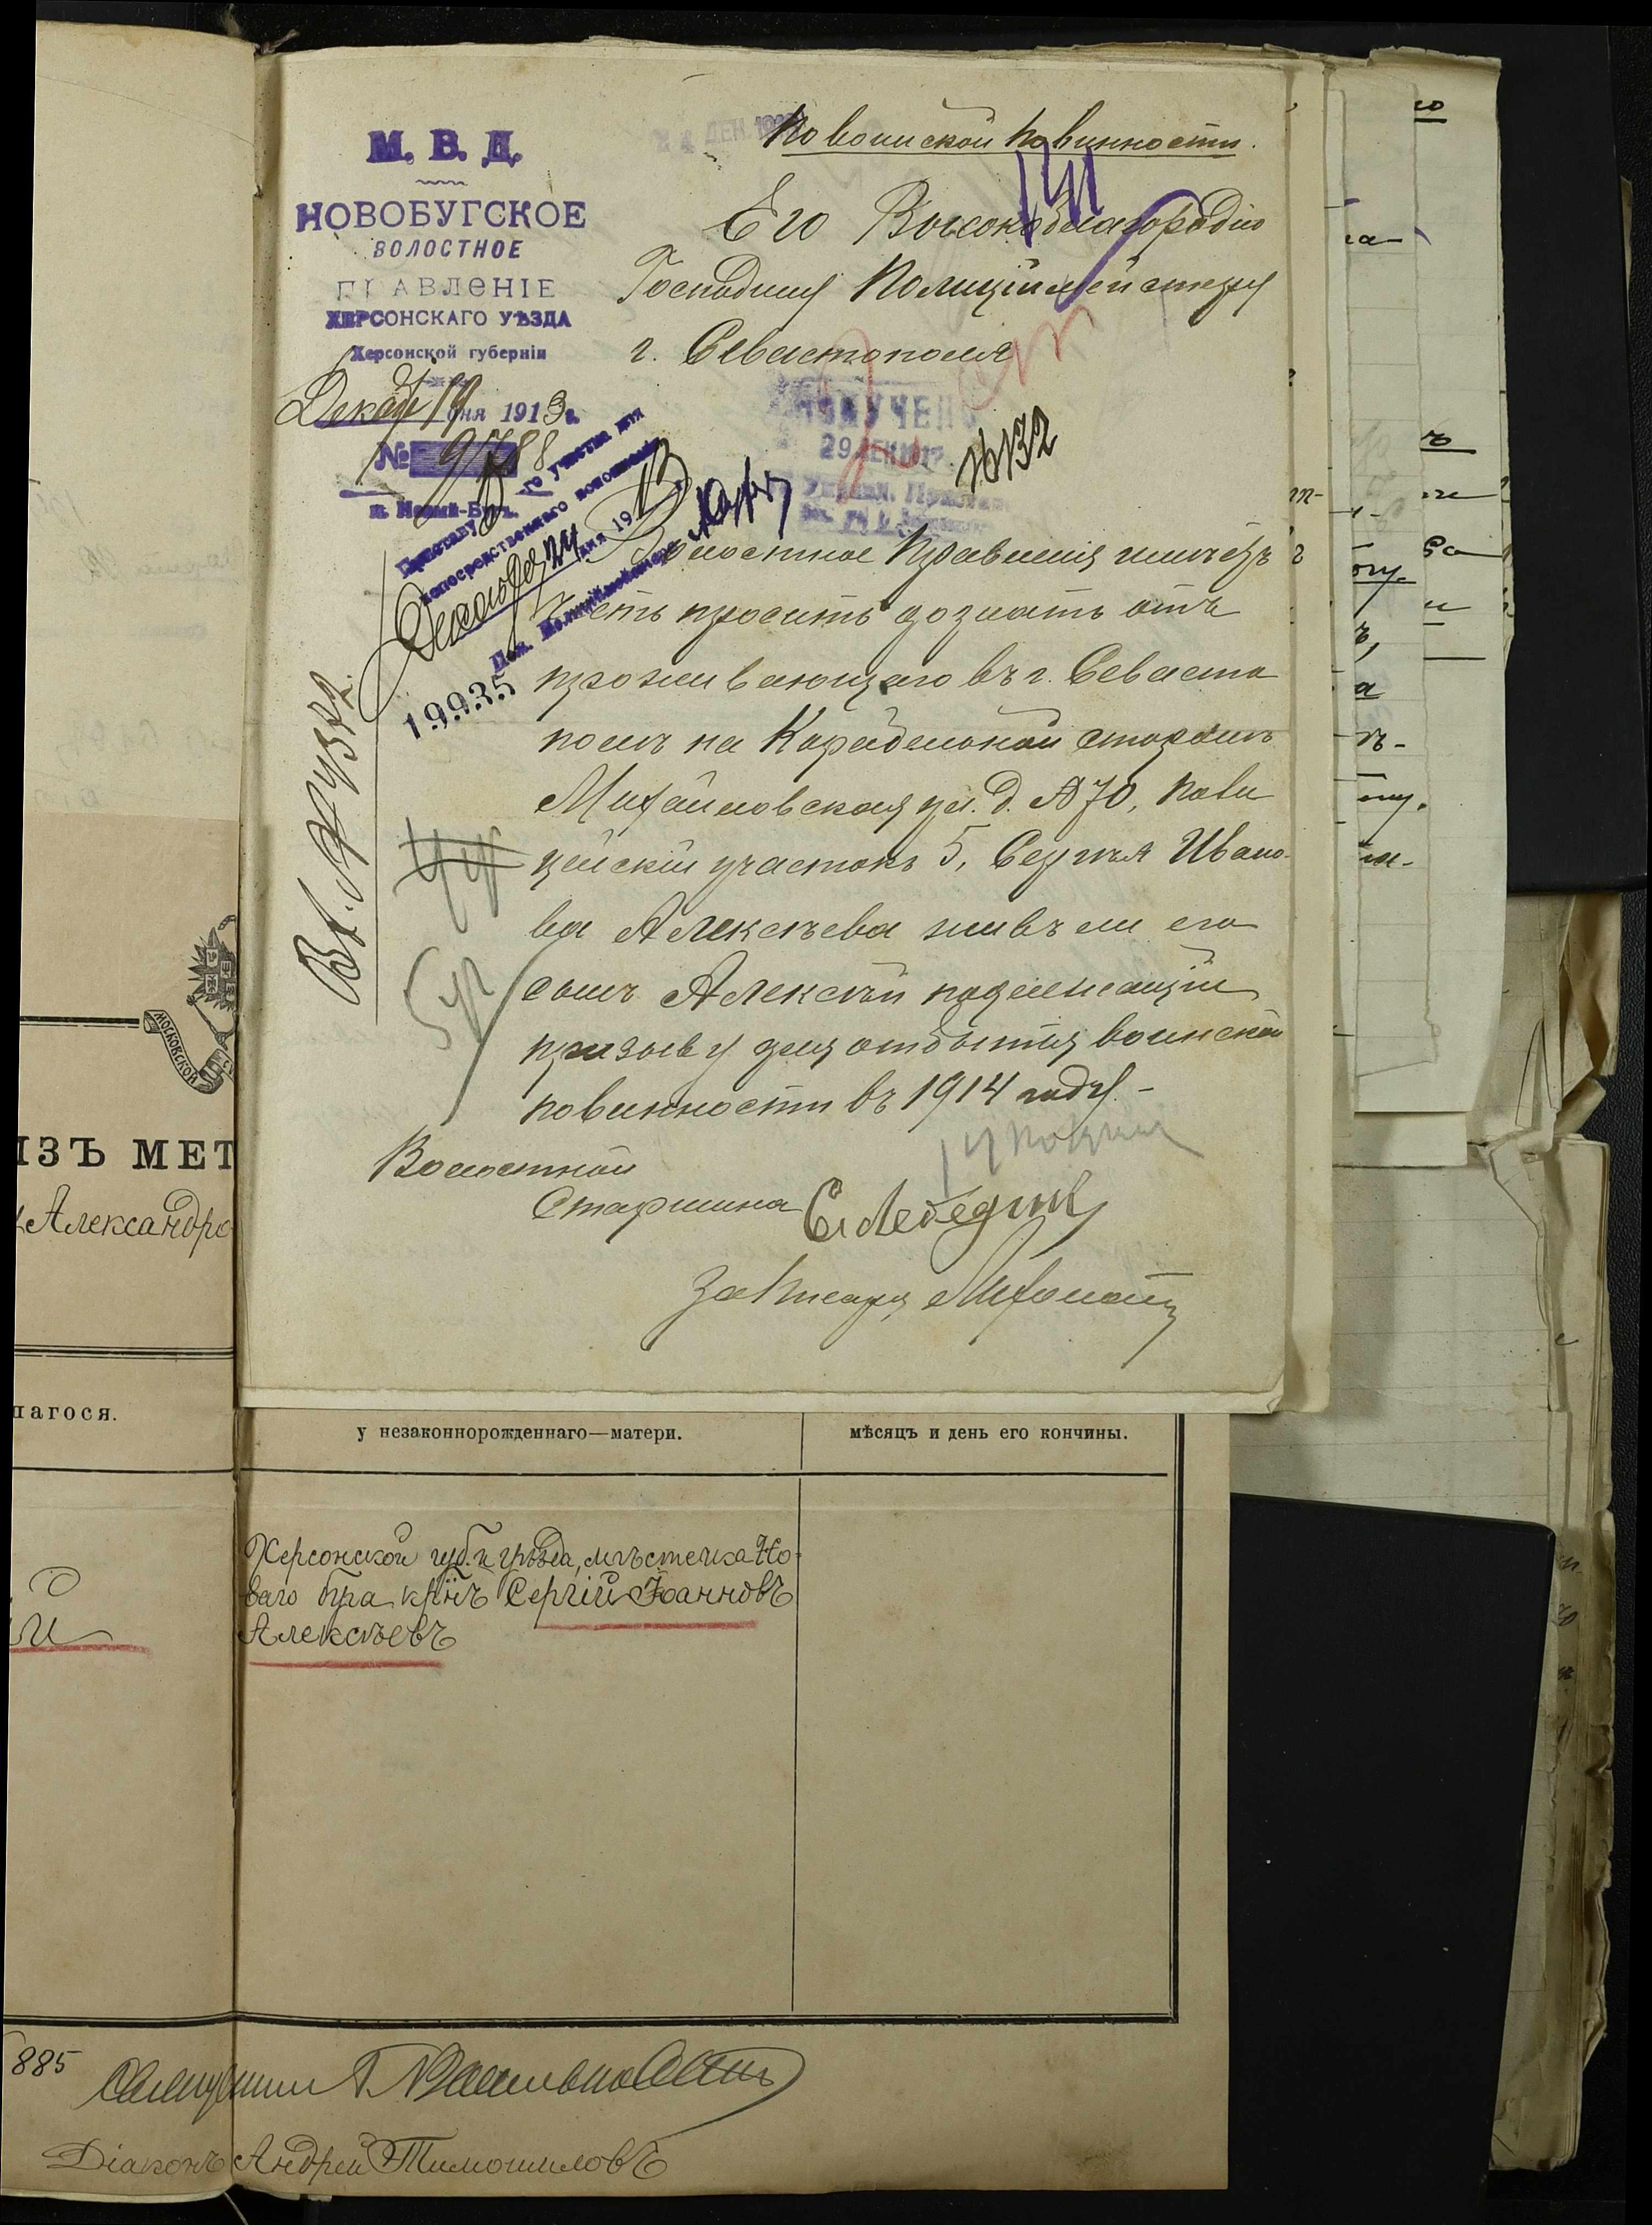 М. В. Д.
НОВОБУГСКОЕ
ВОЛОСТНОЕ
ПРАВЛЕНІЕ
ХЕРСОНСКАГО УѢЗДА
Херсонской губерніи
Декаб 19 дня 1913 г.
№ 9788
По воинской повинности.
Его Высокоблагородію
Господину Полиціймейстеру
г. Севастополя
ПОЛУЧЕНО
16132
Приставу го участка для
непосредственнаго исполненія
Декабря 24 дня 1913
Полиціймейстеръ
19935
Волостное Правленіе имѣетъ
честь просить дознать отъ
проживающаго въ г. Севасто
полѣ на Карабельной сторонѣ
Михайловская ул. д. №70, поли
цейскій участокъ 5, Сергѣя Ивано-
ва Алексѣева живъ ли его
сынъ Алексѣй подлежащій
призыву для отбытія воинской
повинности въ 1914 году.-
5 уч
Волостной
Старшина С. Лебедин
За Писаря
ИЗЪ МЕТ
Александро
лагося.
у незаконнорожденнаго—матери.
мѣсяцъ и день его кончины.
МОСКОВСКОЙ
Херсонской губ. и уѣзда, мѣстечка Но-
ваго Буга кр͞нъ Сергій Іоанновъ
Алексѣевъ
885
Діаконъ Андрей Тимошиловъ